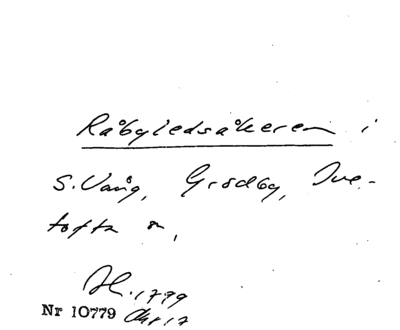 Råbyledsåkeren i
S. Vång, Grödby, Tve-
tofta
H. 1799
Nr 10779